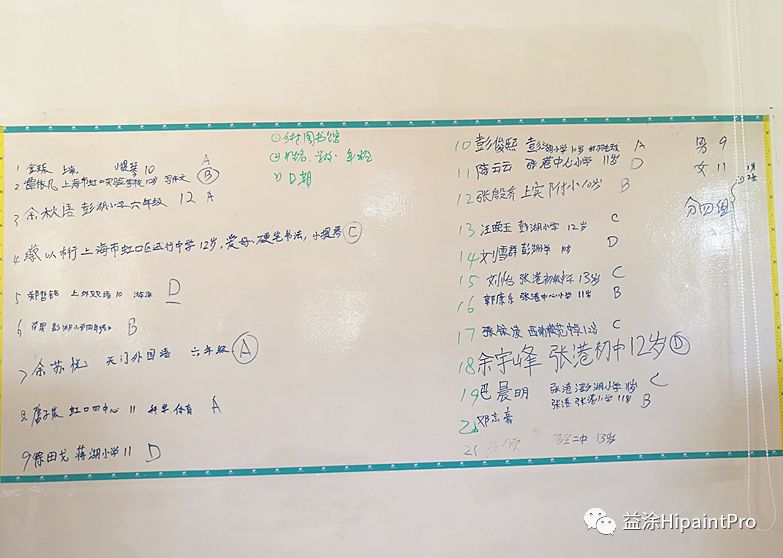 1 上海 小提琴 10 A
2 上海市虹口实验学校 12岁 写作文 B
3 余秋语 彭湖小学六年级 12 A
4 以桁 上海市虹口区五行中学 12岁, 爱好:硬笔书法, 小提琴 C
5 郑哲铭 上外双语 10 游泳 D
6 彭湖小学四年级 B
7 余苏悦 天门外国语 六年级 A
8 虹口四中心 11 科学 体育 A
9 田戈 蒋湖小学 11 D
① 乡村图书馆
② 姓名、学校、年龄
③ 日期
10 彭俊熙 彭湖小学 10岁 打羽毛球 A
11 陈云云 张港中心小学 11岁 D
12 张殷齐 上实附小 10岁 B
13 汪晓玉 彭湖小学 12岁 C
14 刘雪群 彭湖小学 D
15 刘怡 张港初级中 13岁 C
16 郭康乐 张港中心小学 11岁 B
17 张 12岁 C
18 余宇峰 张港初中 12岁 D
19 巴晨明 张港彭湖小学 C
20 邓志豪 张港 11岁 B
21 二中 13岁
男 9
女 11
分四组
益涂HipaintPro